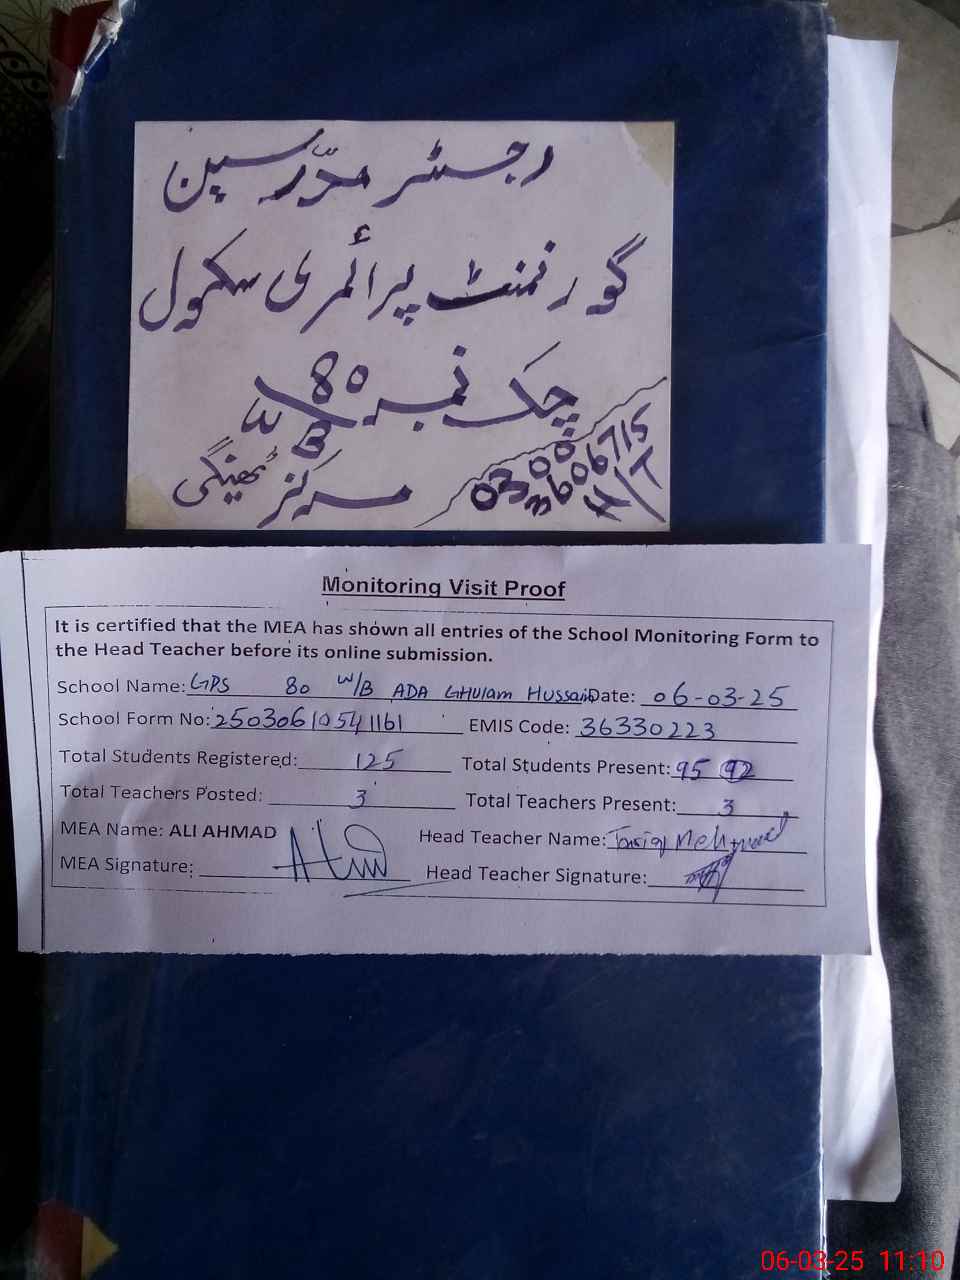 رجسٹر مدّرسین
گورنمنٹ پرائمری سکول
چک نمبر 80/WB
مرکز ٹھینگی
0300
3606715
H/T
Monitoring Visit Proof
It is certified that the MEA has shown all entries of the School Monitoring Form to
the Head Teacher before its online submission.
School Name: GPS 80 W/B ADA GHULAM HUSSAIN Date: 06-03-25
School Form No: 25030610541161 EMIS Code: 36330223
Total Students Registered: 125 Total Students Present: 95 92
Total Teachers Posted: 3 Total Teachers Present: 3
MEA Name: ALI AHMAD Head Teacher Name: Tariq Mehmood
MEA Signature: Head Teacher Signature:
06-03-25 11:10